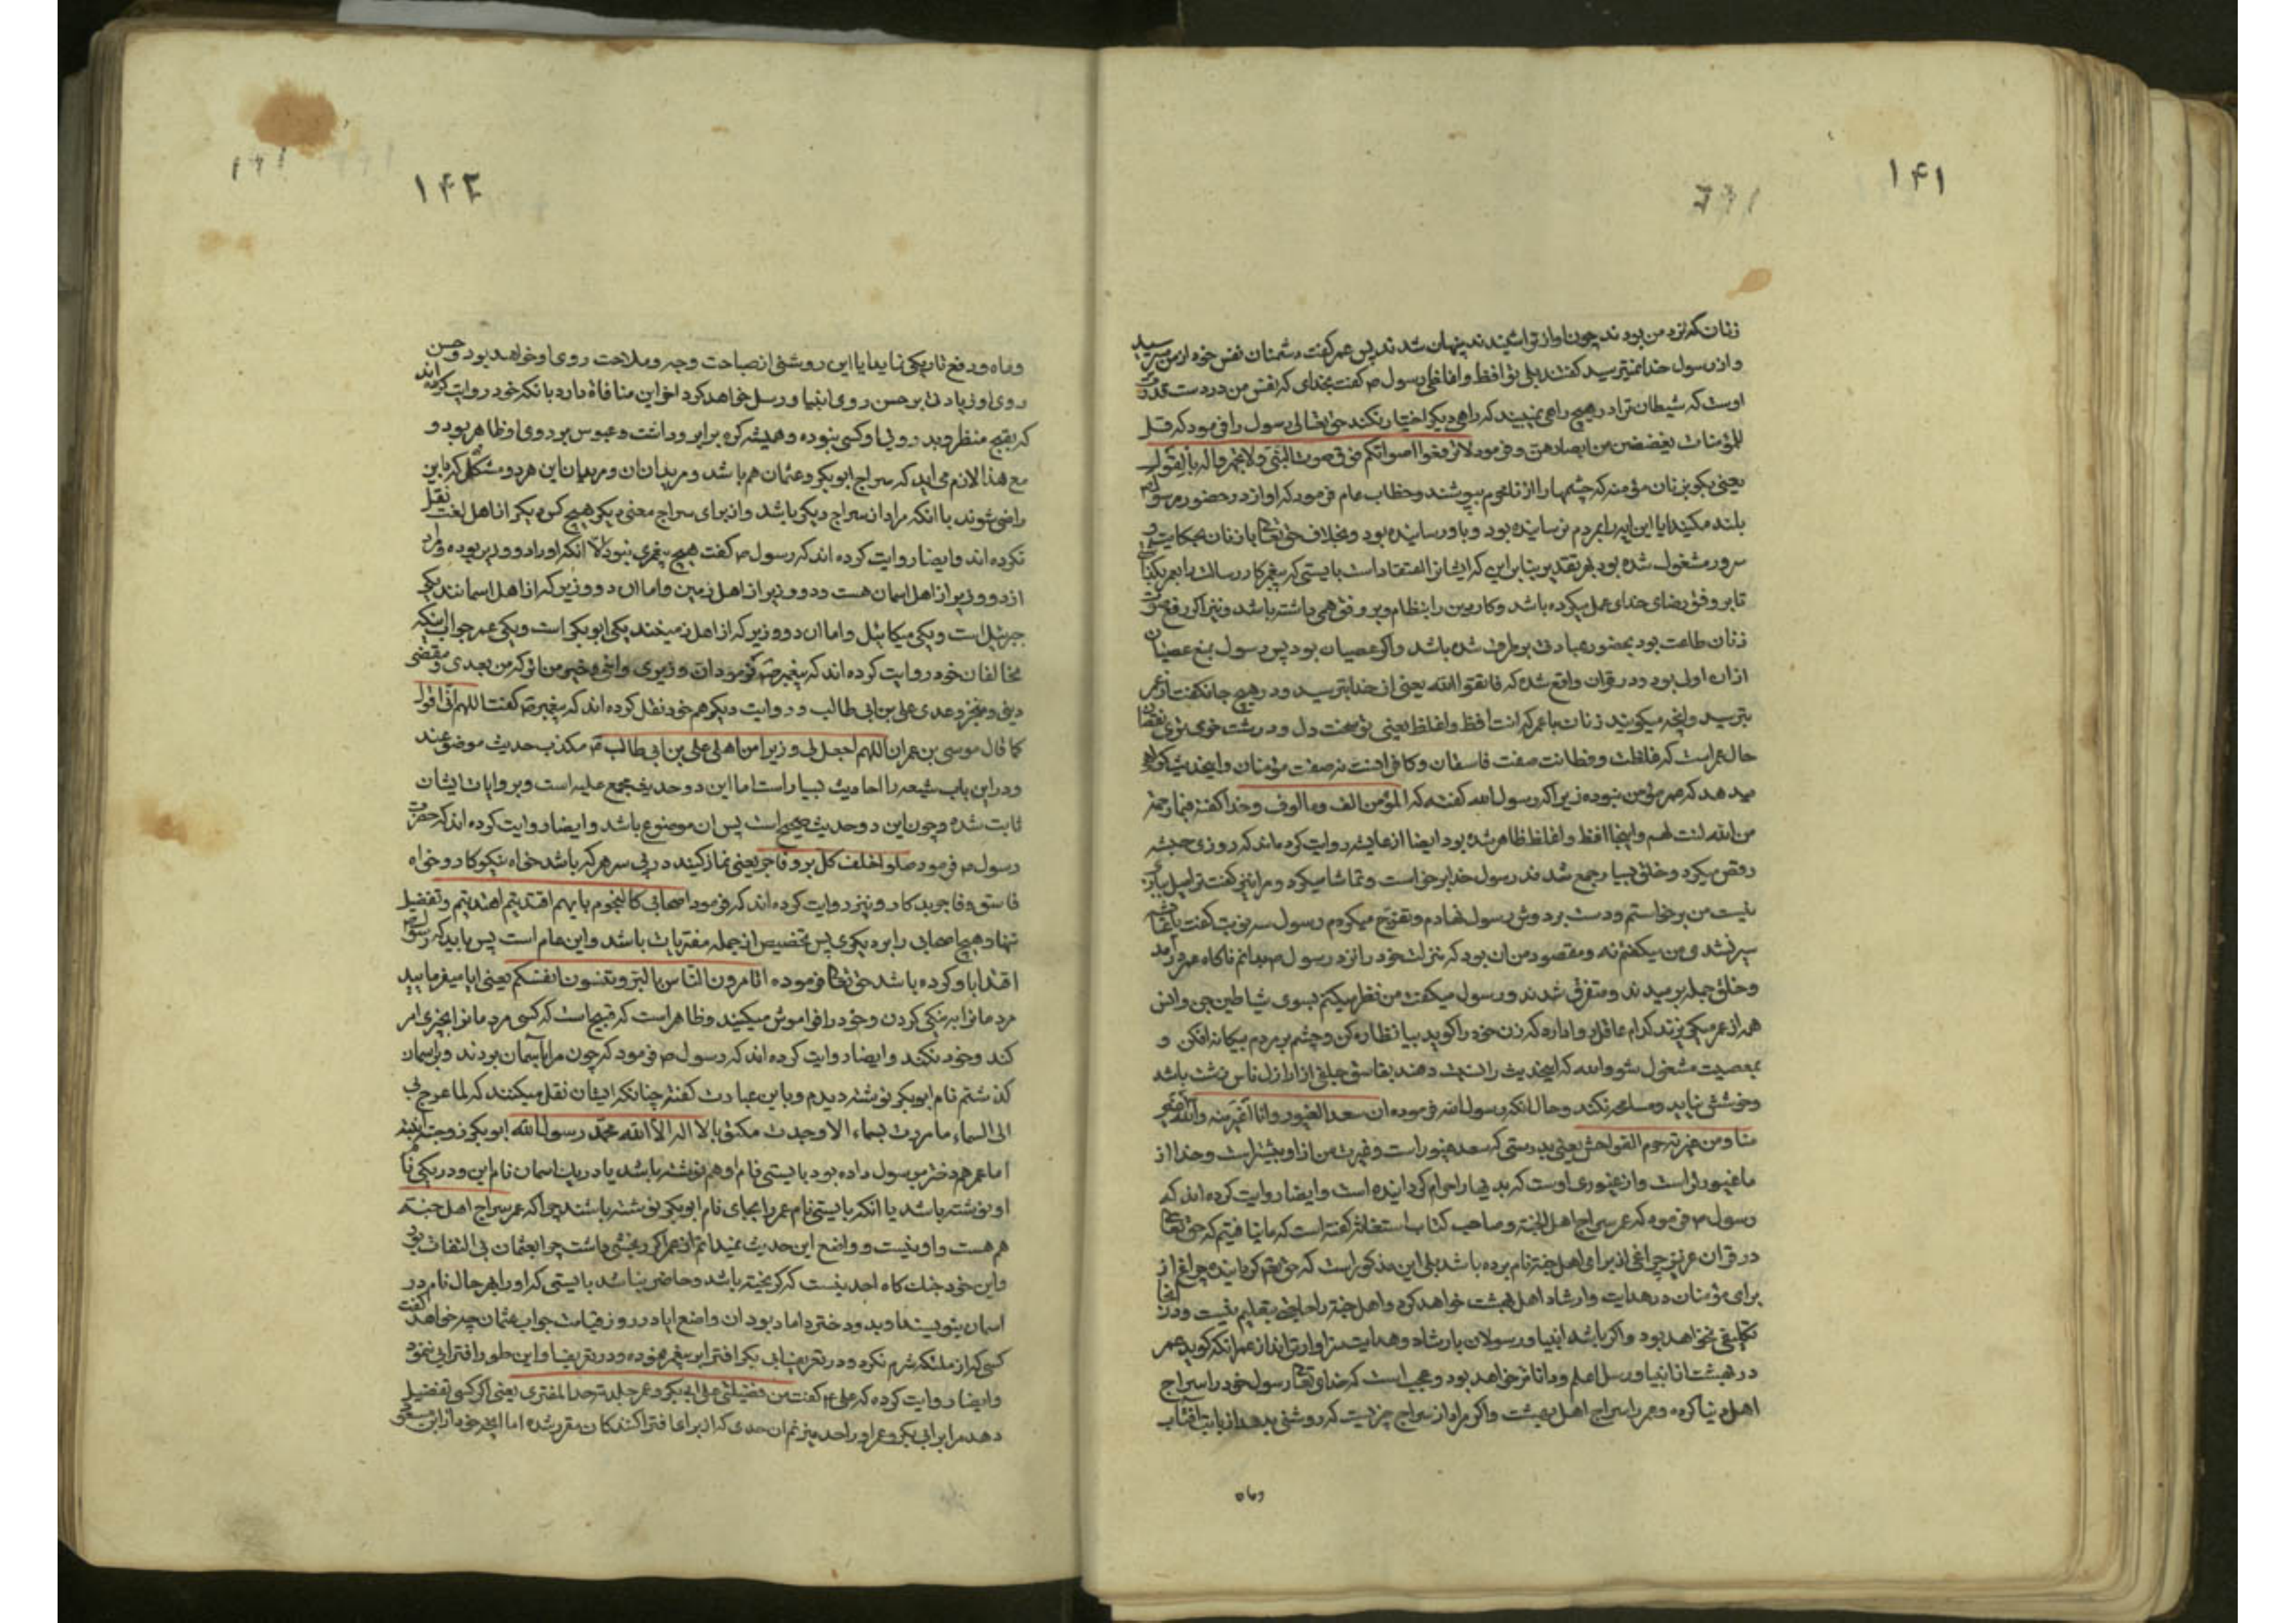 ۱۴۱
زنان که نزد من بودند چون اواز تو شنیدند پنهان شدند پس عمر گفت دشمنان نفس خود از من میترسید
و از رسول خدا نمیترسید گفتند بلی تو افظ و اغلظی رسول ص گفت بخدای که نفس من در دست قدرت
اوست که شیطان ترا در هیچ راهی نبیند که راهی دیگر اختیار نکند حق تعالی رسول را فرمود که قل
للمؤمنات یغضضن من ابصارهن و فرمود لا ترفعوا اصواتکم فوق صوت النبی و لا تجهروا له بالقول
یعنی بگو بزنان مؤمنه که چشمها را از نامحرم بپوشند و خطاب عام فرمود که اواز در حضور رسول
بلند مکنید ایا این ایه را بمردم نرسانیده بود و باو رسانیده بود و بخلاف حق تعا با زنان بحکایت
سرور مشغول شده بود بهر تقدیر بنابر این که ایشانرا اعتقاد است بایستی که پیغمبر کار رسالت را بعمر
تا بر وفق رضای خدای عمل میکرده باشد و کار دین را بنظام و بر وفق می داشته باشد و نیز اگر رفع صوت
زنان طاعت بود بحضور عبادتی برطرف شده باشد و اگر عصیان بود پس رسول بمنع عصیان
از ان اولی بود و در قران واقع شده که فاتقوا الله یعنی از خدا بترسید و در هیچ جا نگفت از عمر
بترسید و انچه میگویند زنان با عمر که انت افظ و اغلظ یعنی تو سخت دل و درشت خوی تری
حال عمر است که غلظت و فظاظت صفت فاسقان و کافرانست نه صفت مؤمنان و این حدیث گواهی
میدهد که عمر مؤمن نبوده زیرا که رسول الله گفته که المؤمن الف و مالوف و خدا گفته فبما رحمة
من الله لنت لهم و اینجا افظ و اغلظ ظاهر شده بود ایضا از عایشه روایت کرده اند که روزی حبشه
رقص میکرد و خلق بسیار جمع شدند رسول خدا برخاست و تماشا میکرد و مرا نیز گفت
نیست من برخاستم و دست بر دوش رسول نهادم و تفرج میکردم رسول سه نوبت گفت یا عایشه
سیر نشدی من میگفتم نه و مقصود من ان بود که منزلت خود را نزد رسول ص بدانم ناگاه عمر در آمد
و خلق جمله برمیدند و متفرق شدند و رسول میگفت من نظر میکنم بسوی شیاطین جن و انس
همه از عمر میگریزند کدام عاقل روا دارد که زن خود را گوید بیا نظاره کن و چشم بر مردم بیگانه افکن و
بمعصیت مشغول شو والله که این حدیث را نسبت دهند بفاسق جلفی از اراذل ناس زشت باشد
و خوشش نیاید و مسلم نکند و حال انکه رسول الله فرموده ان سعد الغیور و انا اغیر منه و الله اغیر
منا و من غیرته حرم الفواحش یعنی بدرستی که سعد غیور است و غیرت من از او بیشتر است و خدا از
ما غیورتر است و از غیوری اوست که بدیها را حرام گردانیده است و ایضا روایت کرده اند که
رسول ص فرمود که عمر سراج اهل الجنة و صاحب کتاب استغاثه گفته است که ما نیافتیم که حق تعا
در قران عزیز چراغی از برای اهل جنة نام برده باشد بلی این مذکور است که
برای مؤمنان در هدایت و ارشاد اهل بهشت خواهد کرد و اهل جنة را حاجت بتعلیم نیست و در آنجا
تکلیفی نخواهد بود و اگر باشد انبیا و رسولان بارشاد و هدایت سزاوارترند از عمر انکه گوید عمر
در بهشت از انبیا و رسل اعلم و داناتر خواهد بود و عجب است که خدای تعا رسول خود را سراج
اهل دنیا کرده و عمر را سراج اهل بهشت و اگر مراد از سراج چیزیست که روشنی بدهد از بابت افتاب
وماه
۱۴۲
وماه و دفع تاریکی نماید ایا این روشنی از صباحت وجه و ملاحت روی او خواهد بود و حسن
روی او زیادتی بر حسن روی انبیا و رسل خواهد کرد اخر این منافاة دارد با انکه خود روایت کرده اند
که بقبح منظر و بد روئی او کسی نبوده و همیشه کره بر ابرو داشت و عبوس بر روی او ظاهر بود و
مع هذا لازم می اید که سراج ابوبکر و عثمان هم باشد و مریدان این هر دو مشکل که باین
راضی شوند با انکه مراد از سراج دیگر باشد و از برای سراج معنی دیگر هیچ کس دیگر از اهل لغت نقل
نکرده اند و ایضا روایت کرده اند که رسول ص گفت هیچ پیغمبری نبود الا انکه او را دو وزیر بوده و مرا
از دو وزیر از اهل اسمان هست و دو وزیر از اهل زمین و اما ان دو وزیر که از اهل اسمانند یکی
جبرئیل است و یکی میکائیل و اما ان دو وزیر که از اهل زمینند یکی ابوبکر است و یکی عمر جواب انکه
مخالفان خود روایت کرده اند که پیغمبر ص فرمود ان وزیری و اخی و خیر من اترکه من بعدی و یقضی
دینی و ینجز وعدی علی بن ابی طالب و روایت دیگر هم خود نقل کرده اند که پیغمبر ص گفت اللهم انی اقول
کما قال موسی بن عمران اللهم اجعل لی وزیرا من اهلی علی بن ابی طالب ع مکذب حدیث موضوعند
و در این باب شیعه را احادیث بسیار است اما این دو حدیث مجمع علیه است و بروایات ایشان
ثابت شده و چون این دو حدیث صحیح است پس ان موضوع باشد و ایضا روایت کرده اند که حضرت
رسول ص فرمود صلوا خلف کل بر و فاجر یعنی نماز کنید در پی سر هر که باشد خواه نیکوکار و خواه
فاسق و فاجر و بدکار و نیز روایت کرده اند که فرمود اصحابی کالنجوم بایهم اقتدیتم اهتدیتم و تفضیل
ننهاد هیچ اصحابی را بر دیگری پس تخصیص از جمله مفتریات باشد و این عام است پس باید که رسول
اقتدا باو کرده باشد حق تعا فرموده اتأمرون الناس بالبر و تنسون انفسکم یعنی ایا میفرمایید
مردمانرا به نیکی کردن و خود را فراموش میکنید و ظاهر است که قبیح است که کسی مردمانرا بچیزی امر
کند و خود نکند و ایضا روایت کرده اند که رسول ص فرمود که چون مرا بآسمان بردند و بر اسمان
گذشتم نام ابوبکر نوشته دیدم و باین عبارت گفته چنانکه ایشان نقل میکنند که لما عرج بی
الی السماء ما مررت بسماء الا وجدت مکتوبا لا اله الا الله محمد رسول الله ابوبکر
اما عمر هم دختر برسول داده بود بایستی نام او هم نوشته باشد یا در یک اسمان نام این و در یکی نام
او نوشته باشد یا انکه بایستی نام عمر را بجای نام ابوبکر نوشته باشند چرا که عمر سراج اهل جنة
هم هست و او نیست و واضع این حدیث نمیدانم از عمر اگر رنجشی داشت چرا بعثمان بی التفات بود
و این خود جنک کاه احد نیست که گریخته باشد و حاضر نباشد بایستی که او را بهر حال نام در
اسمان بنویسند او بدو دختر داماد بود ان واضع ایا در روز قیامت جواب عثمان چه خواهد گفت
کسی که از ملئکه شرم نکرد و در تعریف ابی بکر افترا بر پیغمبر نموده و در تعریف او این طور افترایی ننمود
و ایضا روایت کرده که علی ع گفت من فضیلتی علی ابی بکر و عمر جلدته حد المفتری یعنی اگر کسی تفضیل
دهد مرا بر ابی بکر و عمر او را حد میزنم ان حدی که از برای افترا کنندکان مقرر شده اما انچه خود از ابن مسعود